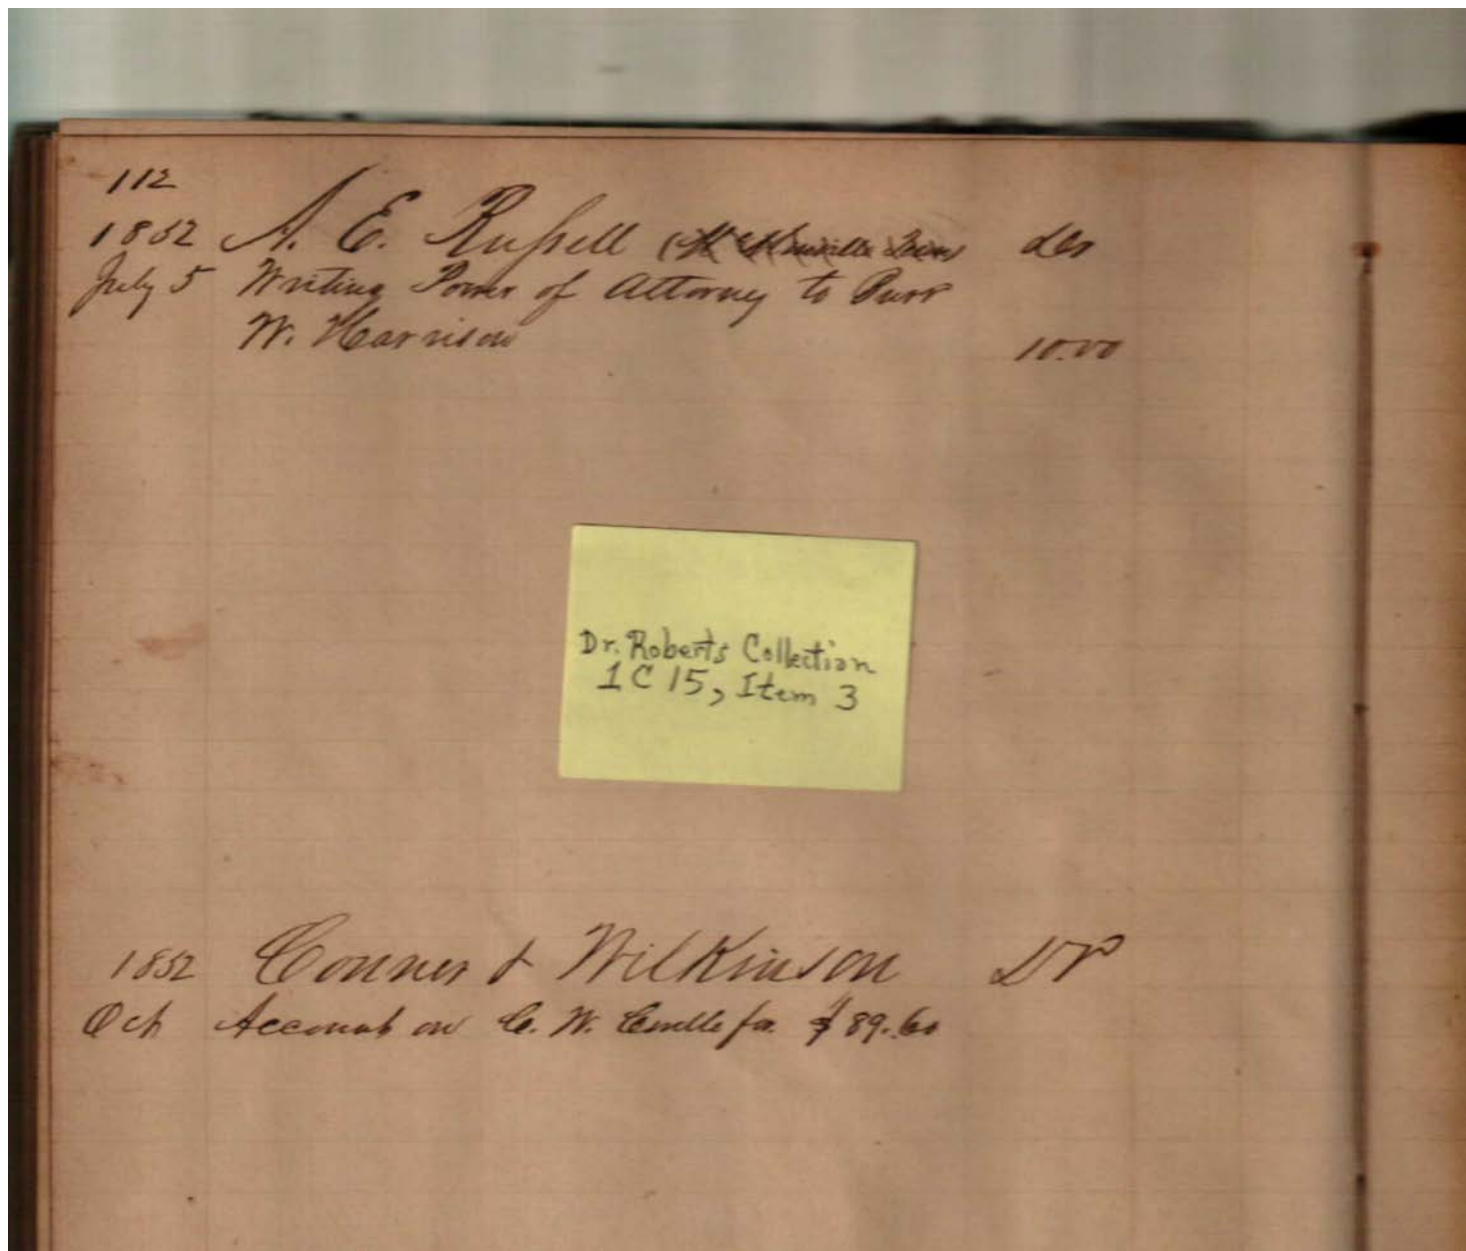 112
1852 A. E. Russell Dr
July 5 Writing Power of Attorney to Burr
W. Harrison 10.00
Dr. Roberts Collection
1C15, Item 3
1852 Conner & Wilkinson Dr
Oct Account on C. W. for $89.60